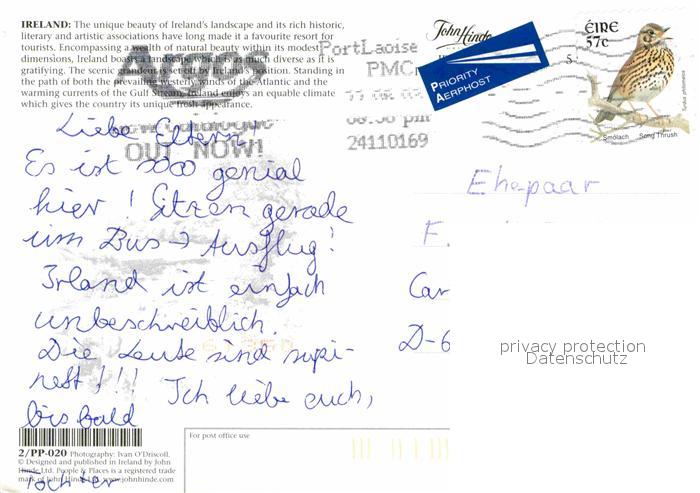 IRELAND: The unique beauty of Ireland's landscape and its rich historic,
literary and artistic associations have long made it a favourite resort for
tourists. Encompassing a wealth of natural beauty within its modest
dimensions, Ireland boasts a landscape which is as much diverse as it is
gratifying. The scenic grandeur is set off by Ireland's position. Standing in
the path of both the prevailing westerly winds of the Atlantic and the
warming currents of the Gulf Stream, Ireland enjoys an equable climate
which gives the country its unique fresh appearance.
Argos
OUT NOW!
John Hinde
PortLaoise
PMC
24110169
PRIORITY
AERPHOST
ÉIRE
57c
Smólach Song Thrush
Turdus philomelos
Liebe Eltern!
Es ist sooo genial
hier! Sitzen gerade
im Bus → Ausflug!
Irland ist einfach
unbeschreiblich.
Die Leute sind supi-
nett!!! Ich liebe euch,
bis bald
Tochter
Ehepaar
F.
Car
D-6
privacy protection
Datenschutz
For post office use
2/PP-020 Photography: Ivan O'Driscoll.
© Designed and published in Ireland by John
Hinde Ltd. People & Places is a registered trade
mark of John Hinde Ltd. www.johnhinde.com